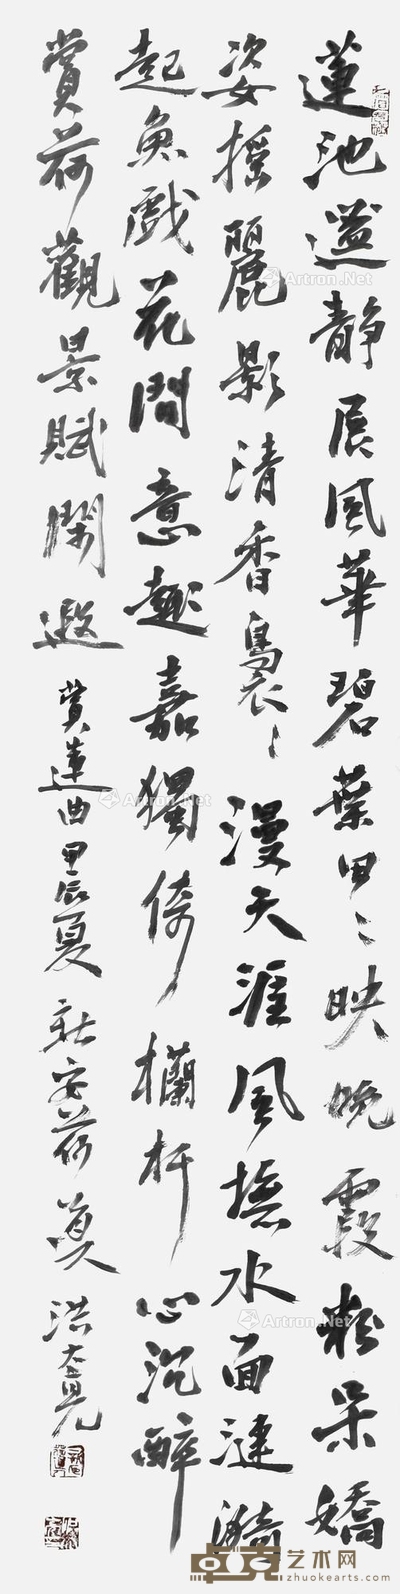 蓮池謐静展風華碧葉田〻映晚霞粉朵嬌
姿摇麗影清香裊〻漫天涯風撩水面漣漪
起魚戲花間意趣嘉獨倚欄杆心沉醉
賞荷觀景賦閑遐 賞蓮曲 甲辰夏 新安荷叟 洪
Artron.Net
Artron.Net
Artron.Net
卓克艺术网
zhuokearts.com